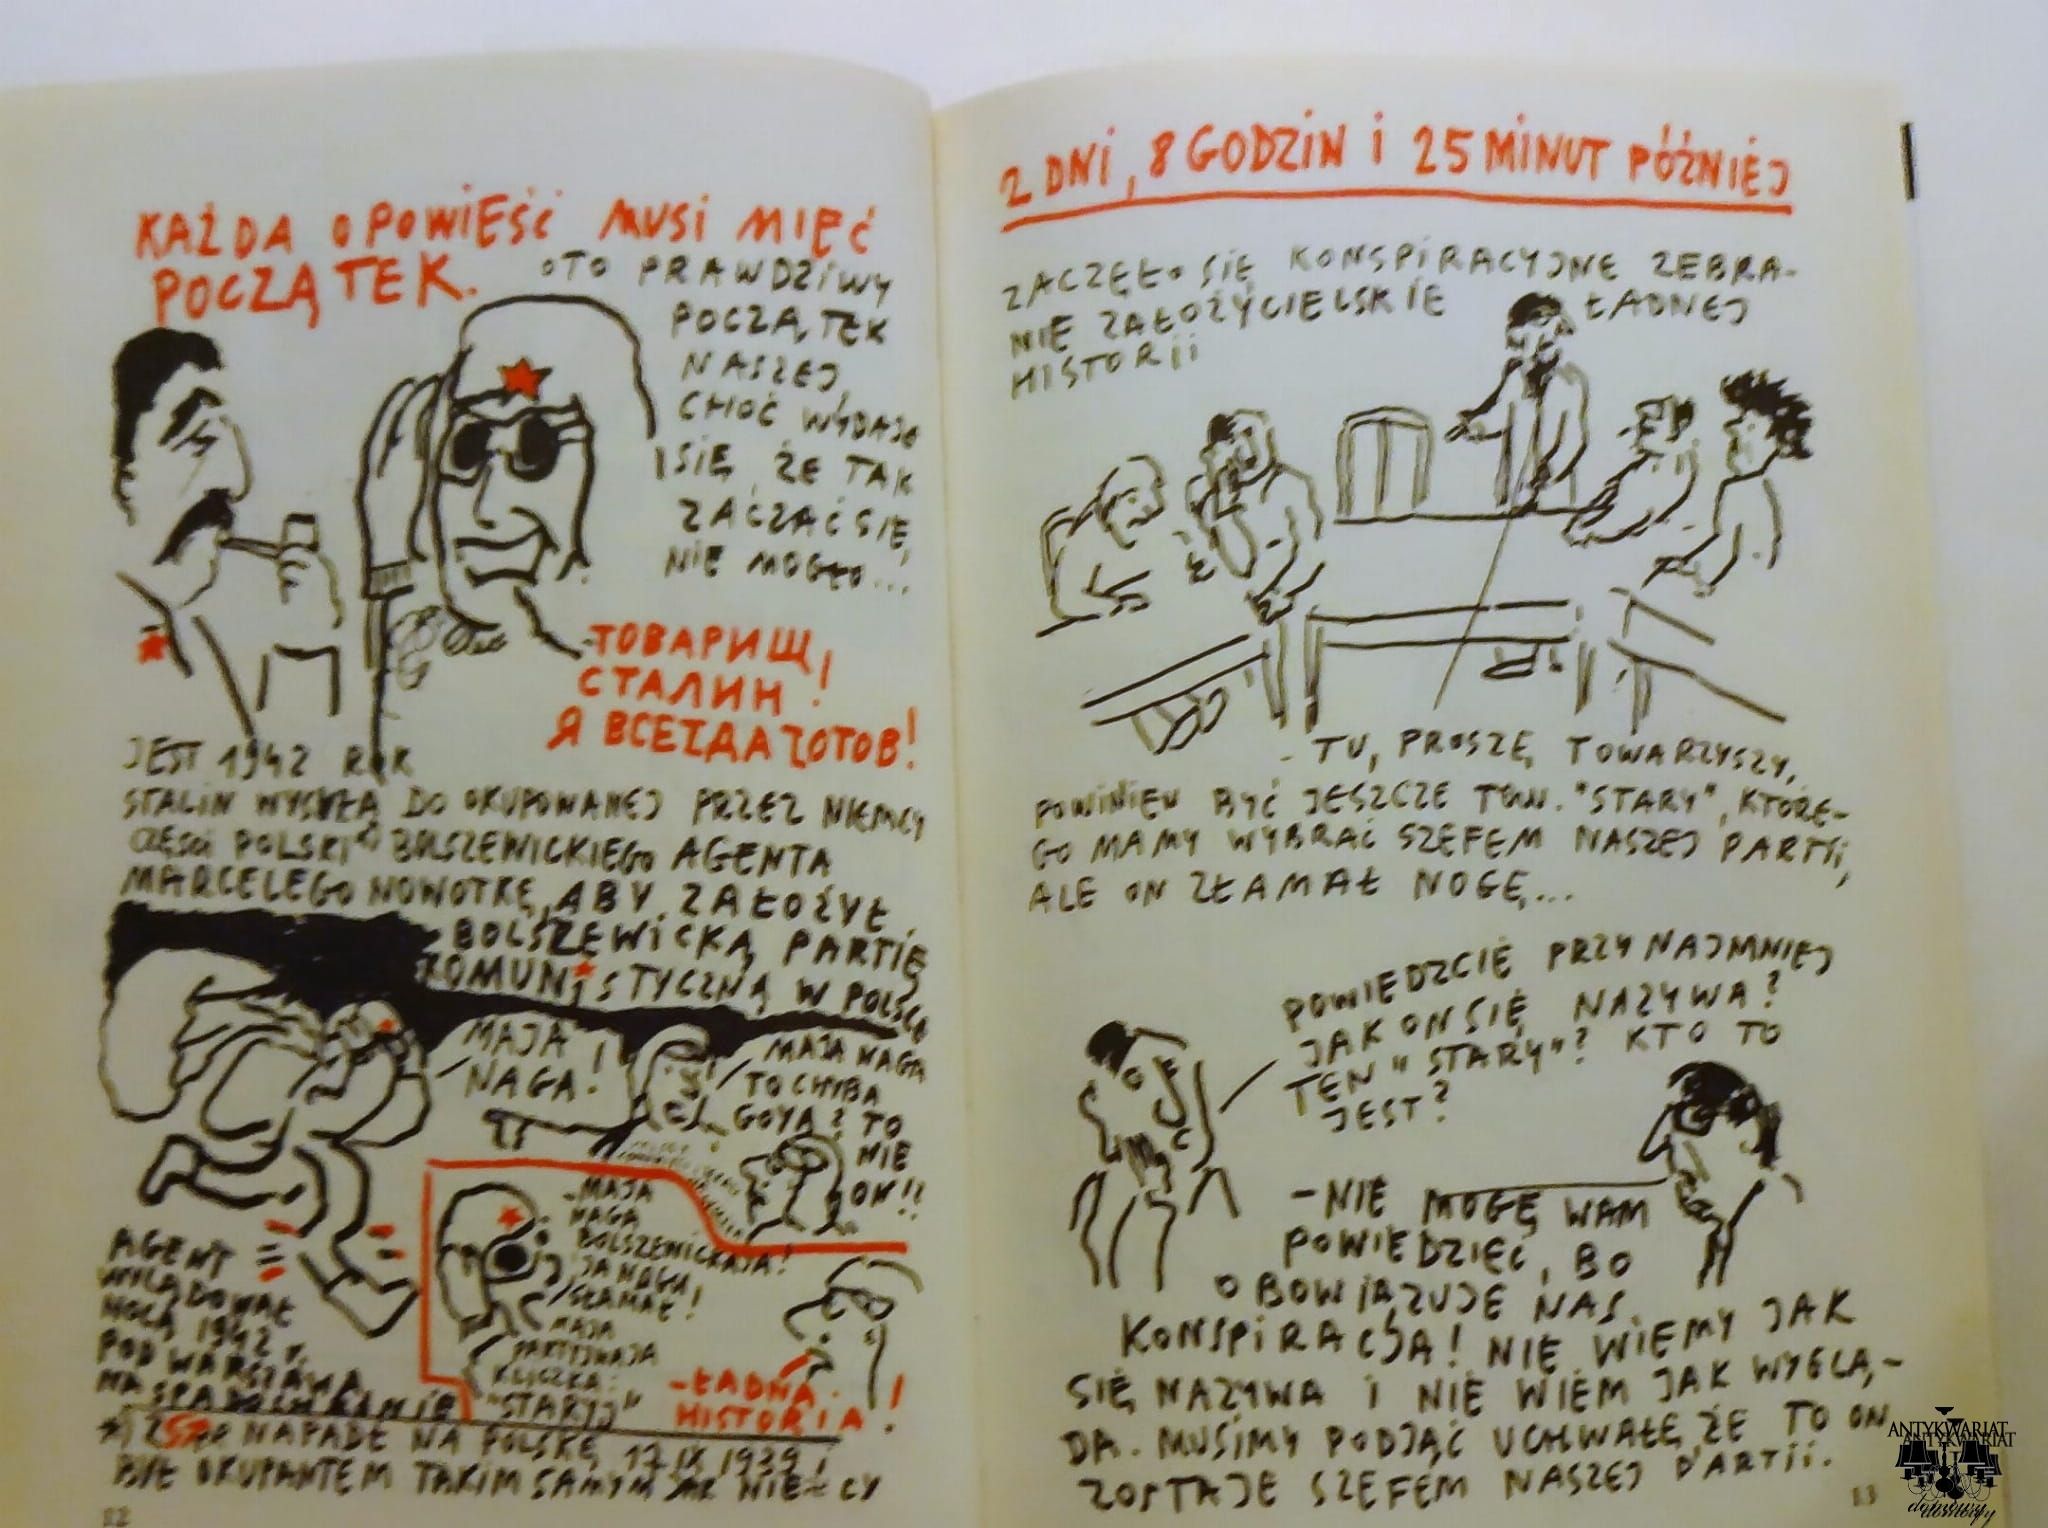 KAŻDA OPOWIEŚĆ MUSI MIEĆ
POCZĄTEK. OTO PRAWDZIWY
POCZĄTEK
NASZEJ,
CHOĆ WYDAJE
SIĘ, ŻE TAK
ZACZĄĆ SIĘ
NIE MOGŁO...
ТОВАРИЩ
СТАЛИН!
Я ВСЕГДА ГОТОВ!
JEST 1942 ROK
STALIN WYSYŁA DO OKUPOWANEJ PRZEZ NIEMCY
CZĘŚCI POLSKI*) BOLSZEWICKIEGO AGENTA
MARCELEGO NOWOTKĘ, ABY ZAŁOŻYŁ
BOLSZEWICKĄ PARTIĘ
KOMUNISTYCZNĄ W POLSCE
MAJA
NAGA!
MAJA NAGA
TO CHYBA
GOYA? TO
NIE
ON!!
AGENT
WYLĄDOWAŁ
NOCĄ 1942 r.
POD WARSZAWĄ
NA SPADOCHRONIE
- MAJA
NAGA
BOLSZEWICKAJA!
JA NOGU
SŁAMAŁ!
MAJA
PARTYJNAJA
KLICZKA:
"STARYJ"
- ŁADNA
HISTORIA!
*) NAPADŁ NA POLSKĘ 17 IX 1939 i
BYŁ OKUPANTEM TAKIM SAMYM JAK NIEMCY
12
2 DNI, 8 GODZIN I 25 MINUT PÓŹNIEJ
ZACZĘŁO SIĘ KONSPIRACYJNE ZEBRA-
NIE ZAŁOŻYCIELSKIE ŁADNEJ
HISTORII
- TU, PROSZĘ TOWARZYSZY,
POWINIEN BYĆ JESZCZE TOW. "STARY", KTÓRE-
GO MAMY WYBRAĆ SZEFEM NASZEJ PARTII,
ALE ON ZŁAMAŁ NOGĘ...
POWIEDZCIE PRZYNAJMNIEJ
JAK ON SIĘ NAZYWA?
TEN "STARY"? KTO TO
JEST?
- NIE MOGĘ WAM
POWIEDZIEĆ, BO
OBOWIĄZUJE NAS
KONSPIRACJA! NIE WIEMY JAK
SIĘ NAZYWA I NIE WIEM JAK WYGLĄ-
DA. MUSIMY PODJĄĆ UCHWAŁĘ, ŻE TO ON
ZOSTAJE SZEFEM NASZEJ PARTII.
13
ANTYKWARIAT
domowy